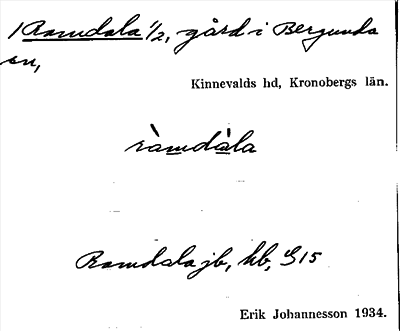 1 Ramdala 1/2, gård i Bergunda
sn,
Kinnevalds hd, Kronobergs län.
ràmdàla
Ramdala jb, hb, G15
Erik Johannesson 1934.